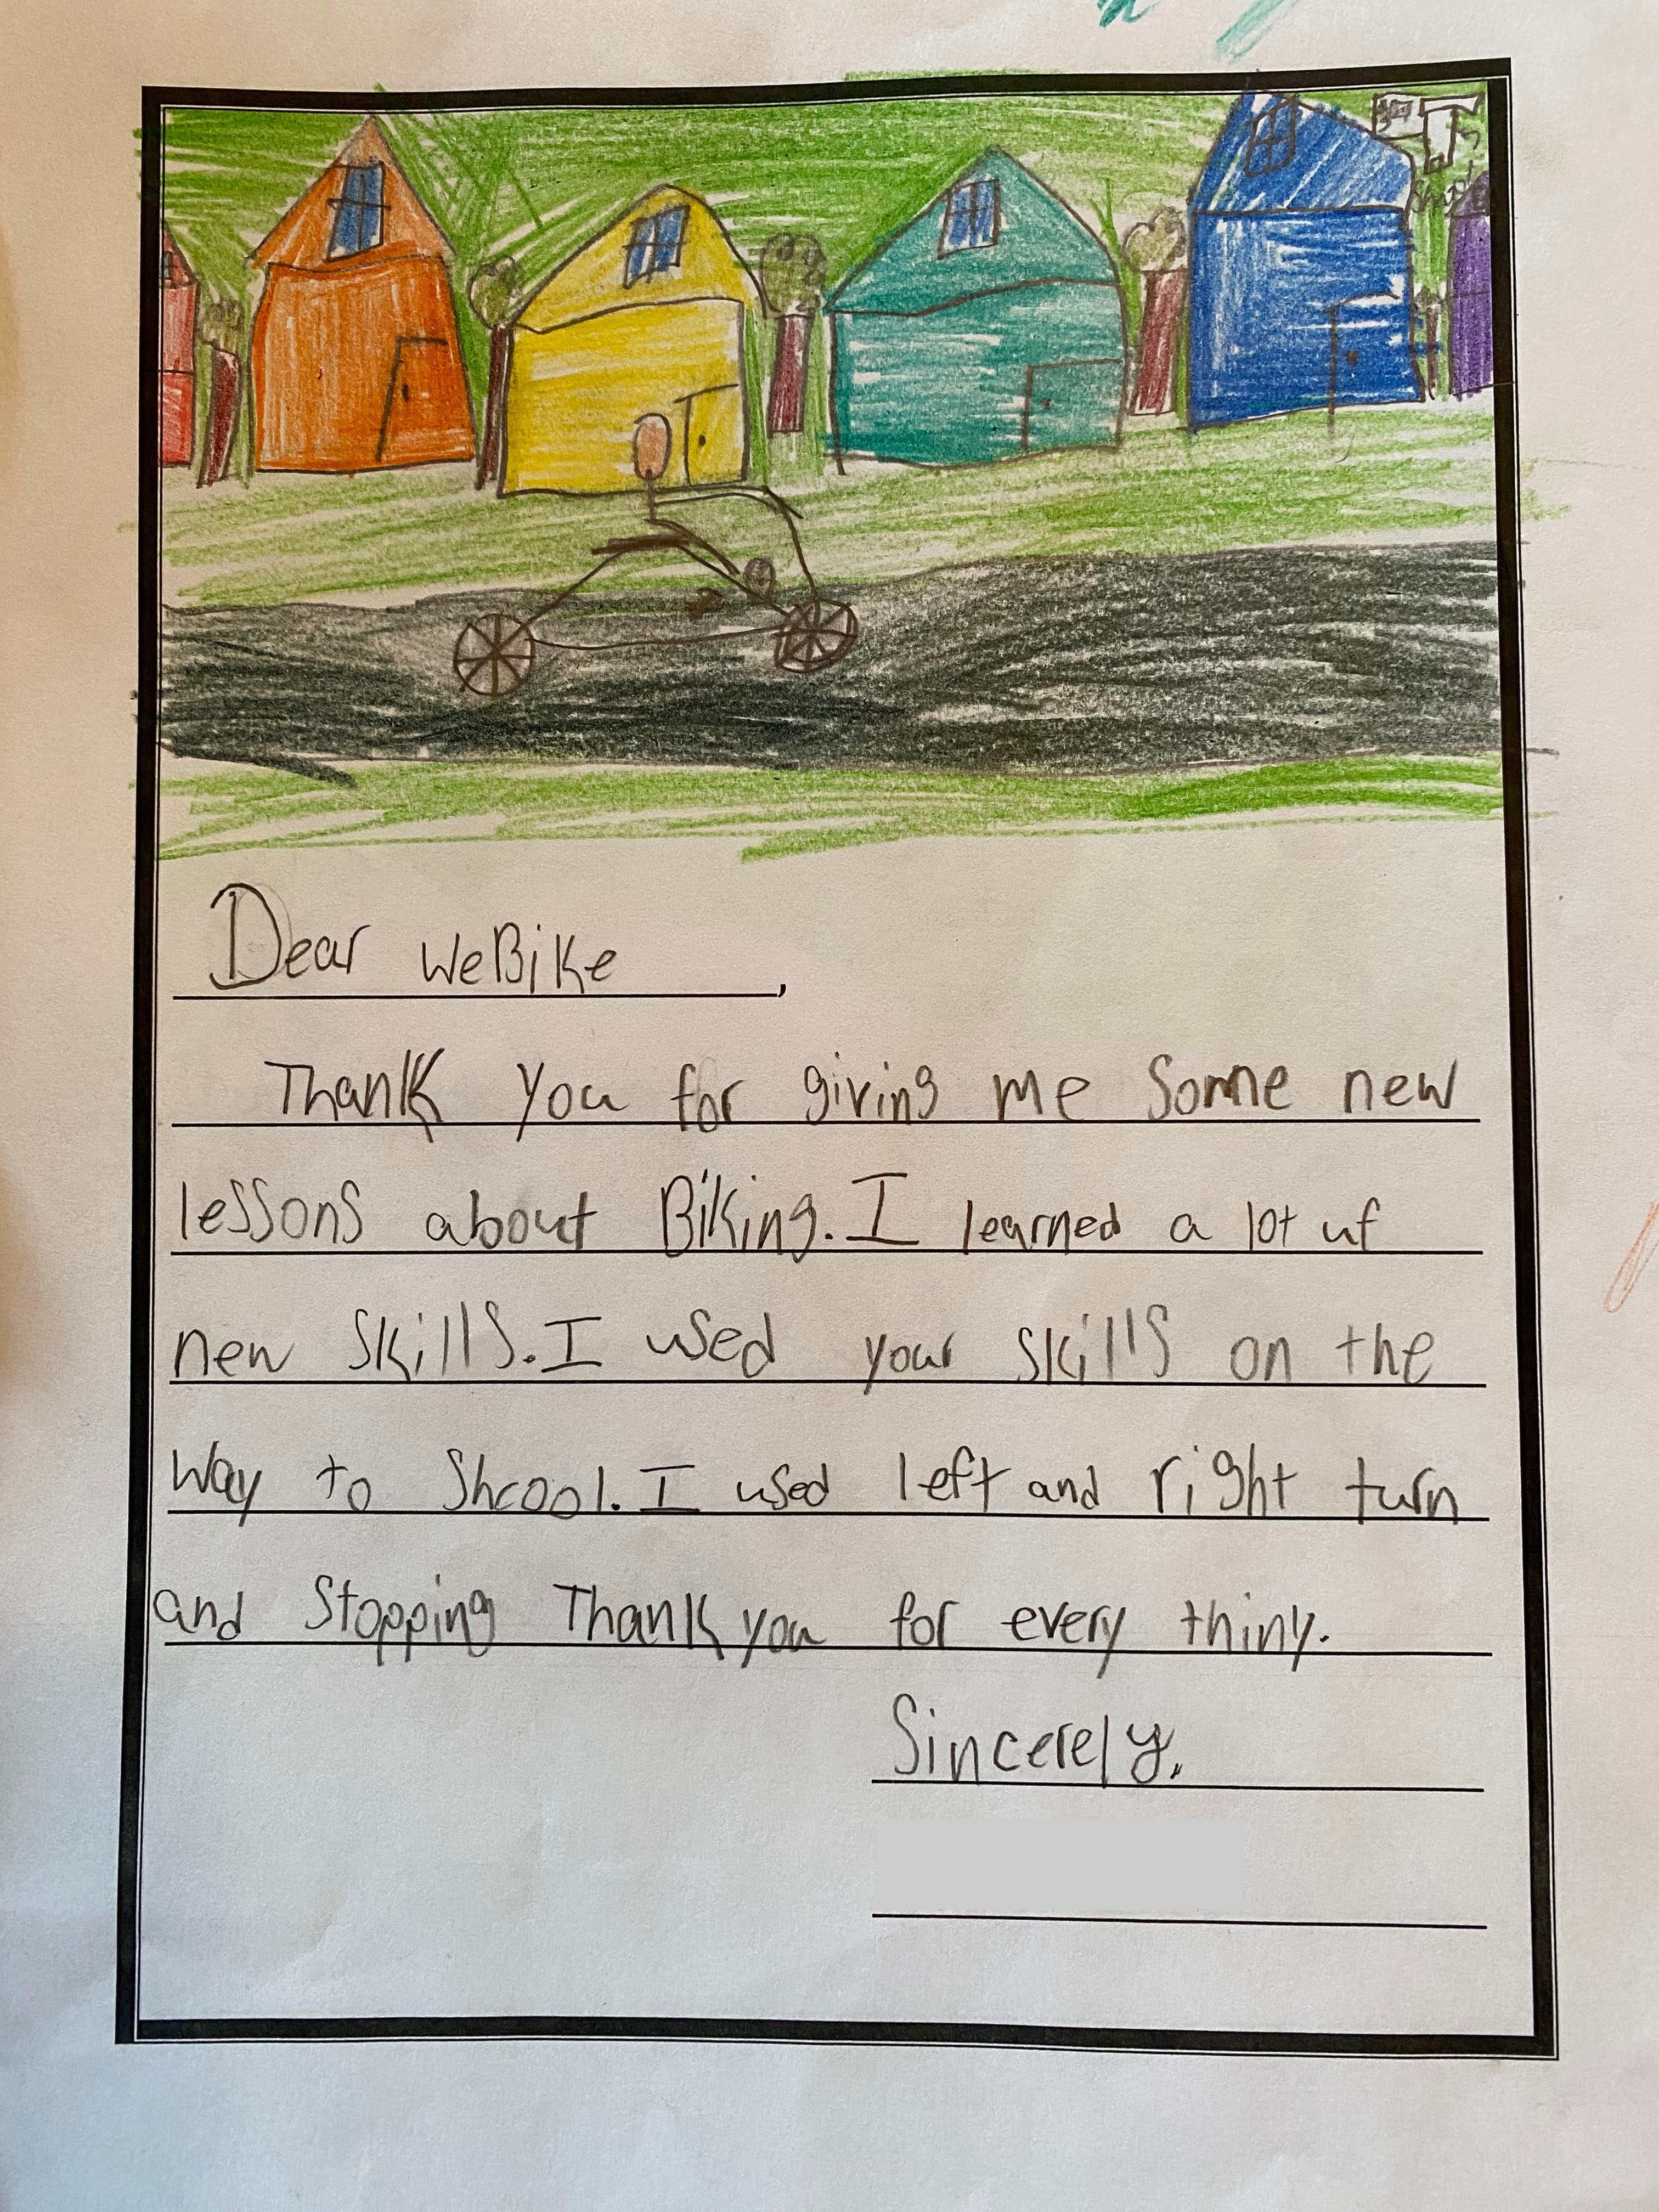 Shcool
Dear WeBike,
Thank you for giving me some new
lessons about Biking. I learned a lot uf
new skills. I used your skills on the
way to Shcool. I used left and right turn
and Stopping Thank you for every thiny.
Sincerely,